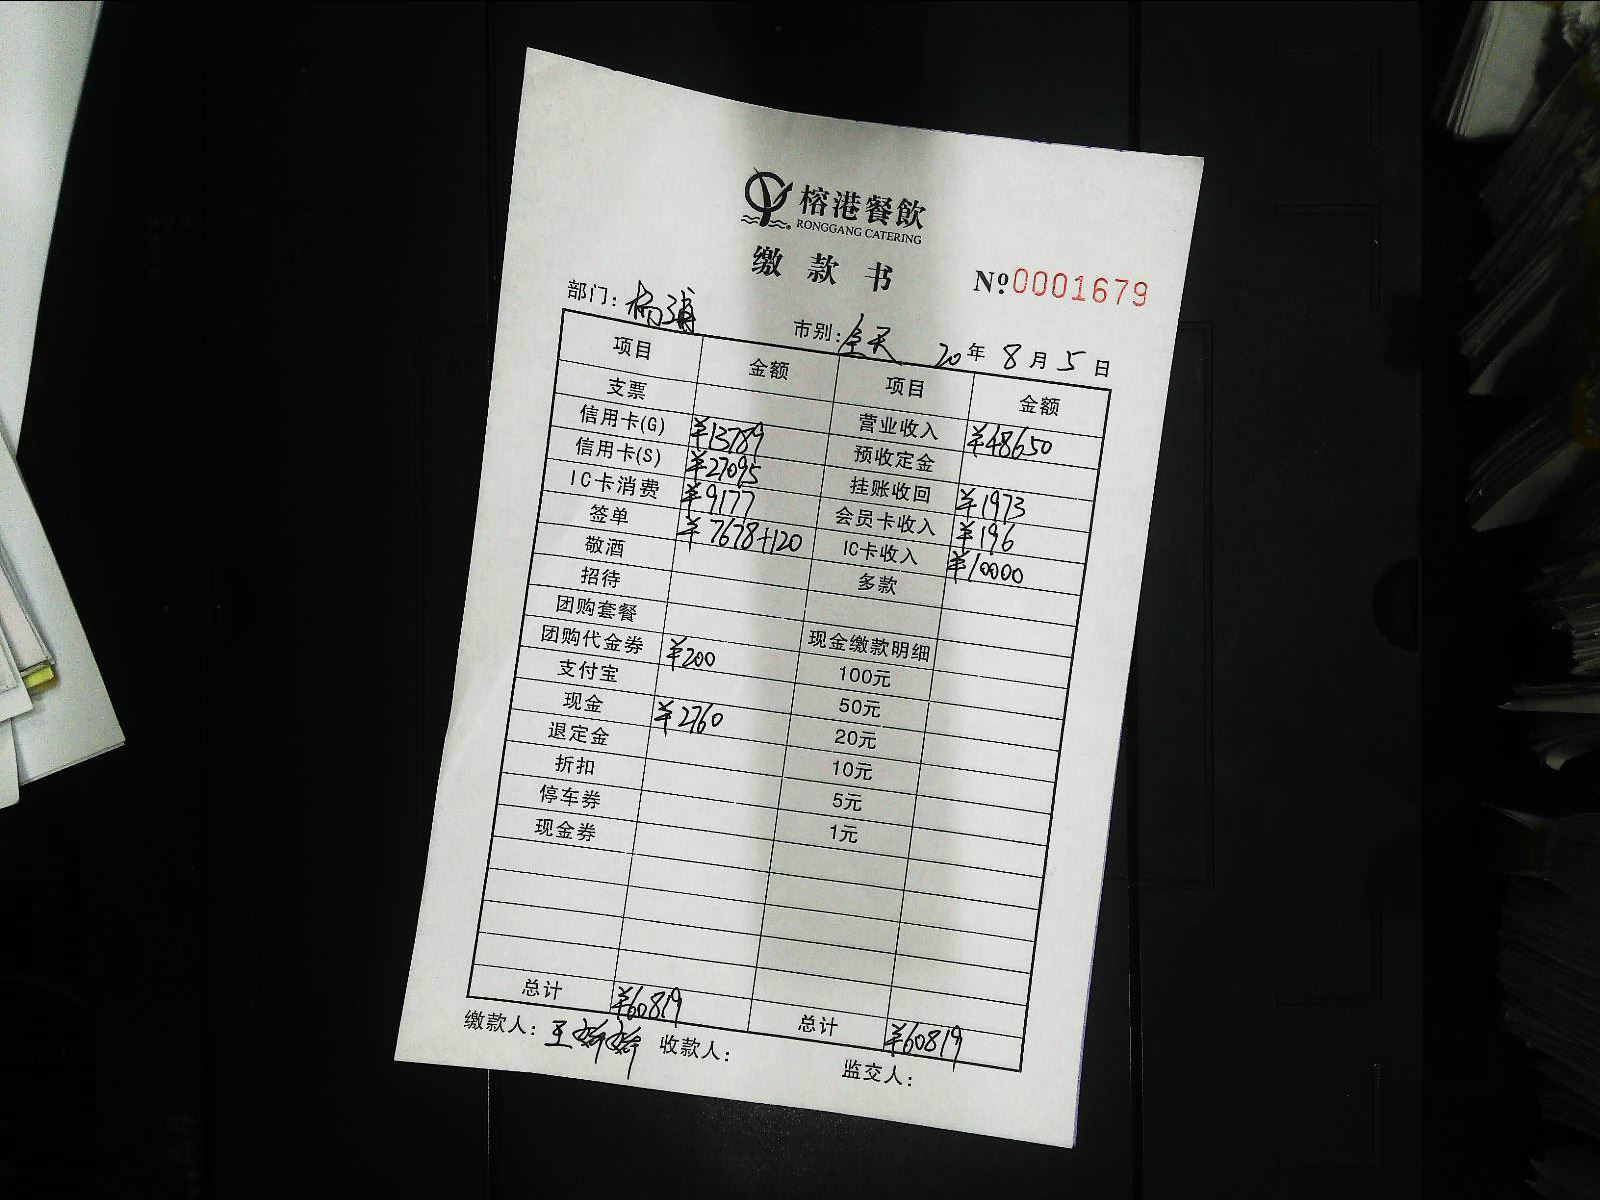 榕港餐飲
RONGGANG CATERING
缴款书
№0001679
部门: 杨浦 市别: 全天 20年8月5日
项目 金额 项目 金额
支票 营业收入 ¥48650
信用卡(G) ¥13789 预收定金
信用卡(S) ¥27095 挂账收回 ¥1973
IC卡消费 ¥9177 会员卡收入 ¥196
签单 ¥7678+120 IC卡收入 ¥10000
敬酒 多款
招待
团购套餐 现金缴款明细
团购代金券 ¥200 100元
支付宝 50元
现金 ¥2760 20元
退定金 10元
折扣 5元
停车券 1元
现金券
总计 ¥60819 总计 ¥60819
缴款人: 王 收款人: 监交人: